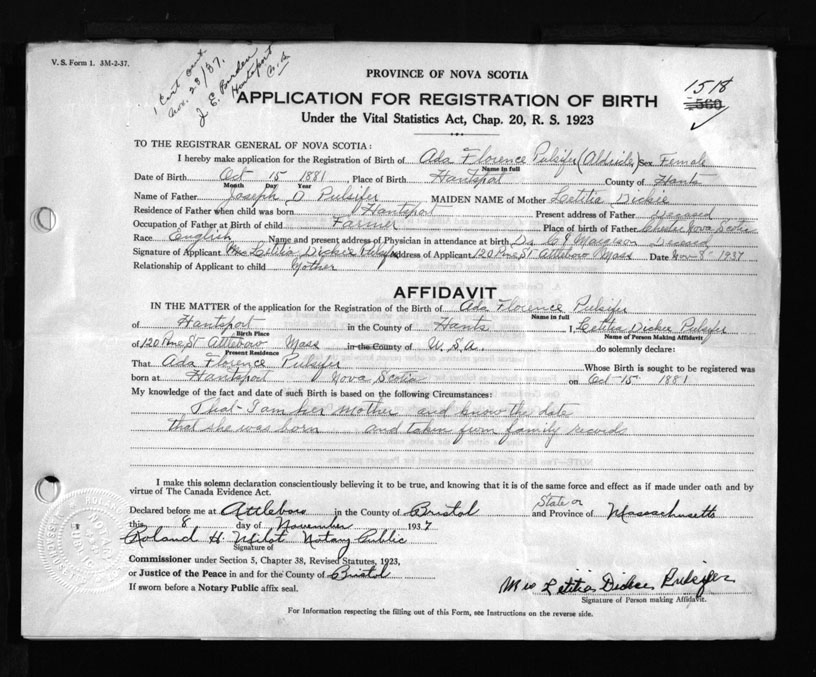 V. S. Form 1. 3M-2-37.
1 Cert out
Nov. 23/37.
J. E. Borden
Hantsport
N.S.
PROVINCE OF NOVA SCOTIA
1518
560
APPLICATION FOR REGISTRATION OF BIRTH
Under the Vital Statistics Act, Chap. 20, R. S. 1923
TO THE REGISTRAR GENERAL OF NOVA SCOTIA:
I hereby make application for the Registration of Birth of Ada Florence Pulsifer (Aldrich) Sex Female
Name in full
Date of Birth Oct 15 1881, Place of Birth Hantsport County of Hants
Month Day Year
Name of Father Joseph D Pulsifer MAIDEN NAME of Mother Letitia Dickie
Residence of Father when child was born Hantsport Present address of Father deceased
Occupation of Father at Birth of child Farmer Place of birth of Father Chester Nova Scotia
Race English Name and present address of Physician in attendance at birth Dr Margeson Deceased
Signature of Applicant Mrs Letitia Dickie Pulsifer Address of Applicant 120 Pine St Attleboro Mass Date Nov-8- 1937
Relationship of Applicant to child Mother
AFFIDAVIT
IN THE MATTER of the application for the Registration of the Birth of Ada Florence Pulsifer
Name in full
of Hantsport in the County of Hants I, Letitia Dickie Pulsifer
Birth Place Name of Person Making Affidavit
of 120 Pine St Attleboro Mass in the County of U.S.A. do solemnly declare:
Present Residence
That Ada Florence Pulsifer Whose Birth is sought to be registered was
born at Hantsport Nova Scotia on Oct-15- 1881
My knowledge of the fact and date of such Birth is based on the following Circumstances:
That I am her mother and know the date
that she was born and taken from family records
I make this solemn declaration conscientiously believing it to be true, and knowing that it is of the same force and effect as if made under oath and by
virtue of The Canada Evidence Act.
Declared before me at Attleboro in the County of Bristol State or and Province of Massachusetts
this 8 day of November 1937
Roland H. Milot Notary Public
Signature of
Commissioner under Section 5, Chapter 38, Revised Statutes, 1923,
or Justice of the Peace in and for the County of Bristol
If sworn before a Notary Public affix seal.
Mrs Letitia Dickie Pulsifer
Signature of Person making Affidavit.
For Information respecting the filling out of this Form, see Instructions on the reverse side.